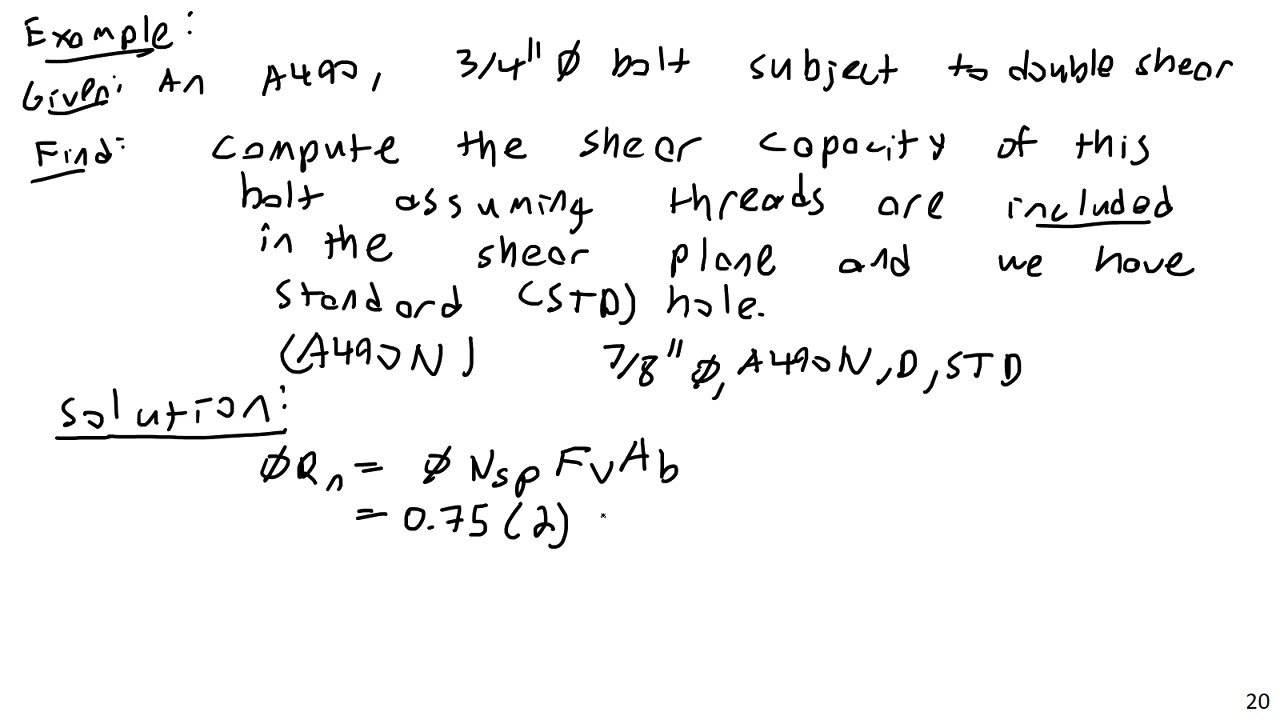 Example:
Given: An A490, 3/4" Ø bolt subject to double shear
Find: compute the shear capacity of this
bolt assuming threads are included
in the shear plane and we have
standard (STD) hole.
(A490N) 7/8" Ø, A490N, D, STD
Solution:
ØRn = Ø Nsp Fv Ab
= 0.75 (2)
20